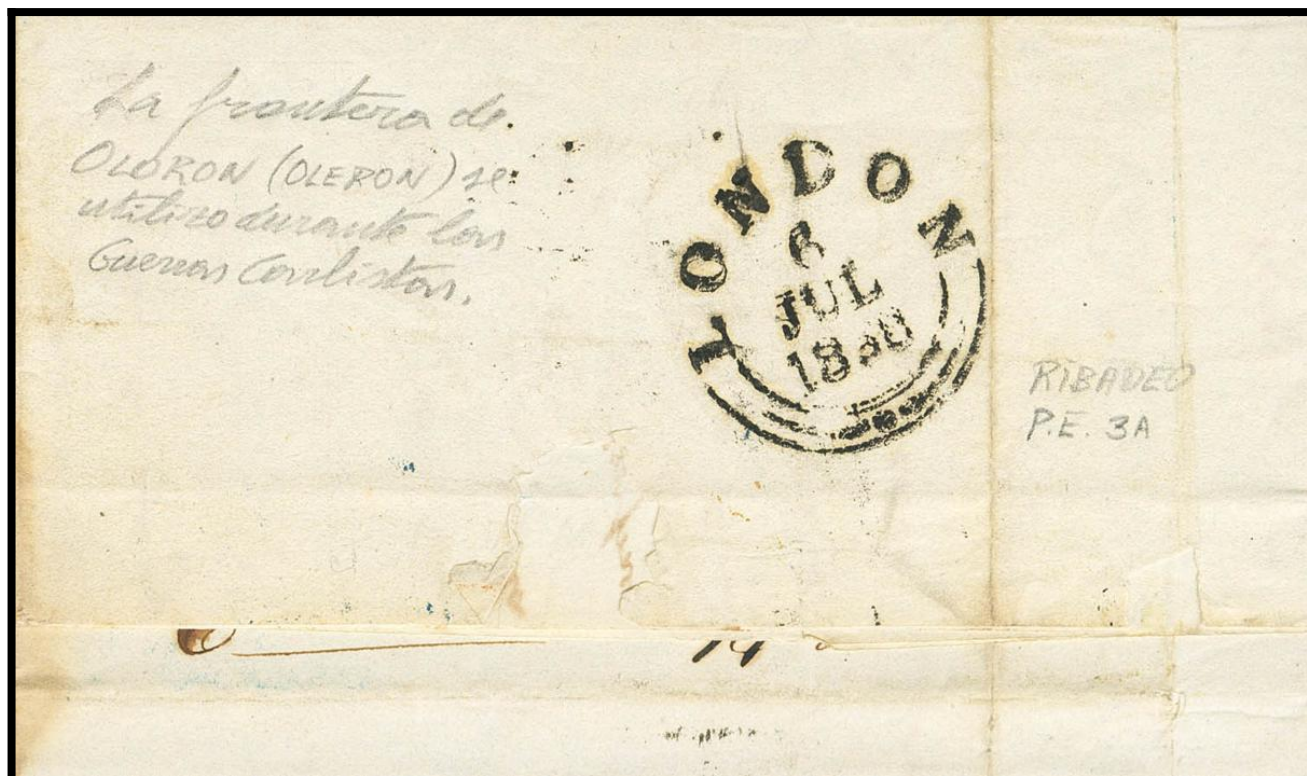 La frontera de
OLORON (OLERON) se
utilizo durante las
Guerras Carlistas.
LONDON
6
JUL
RIBADEO
P.E. 3A
14